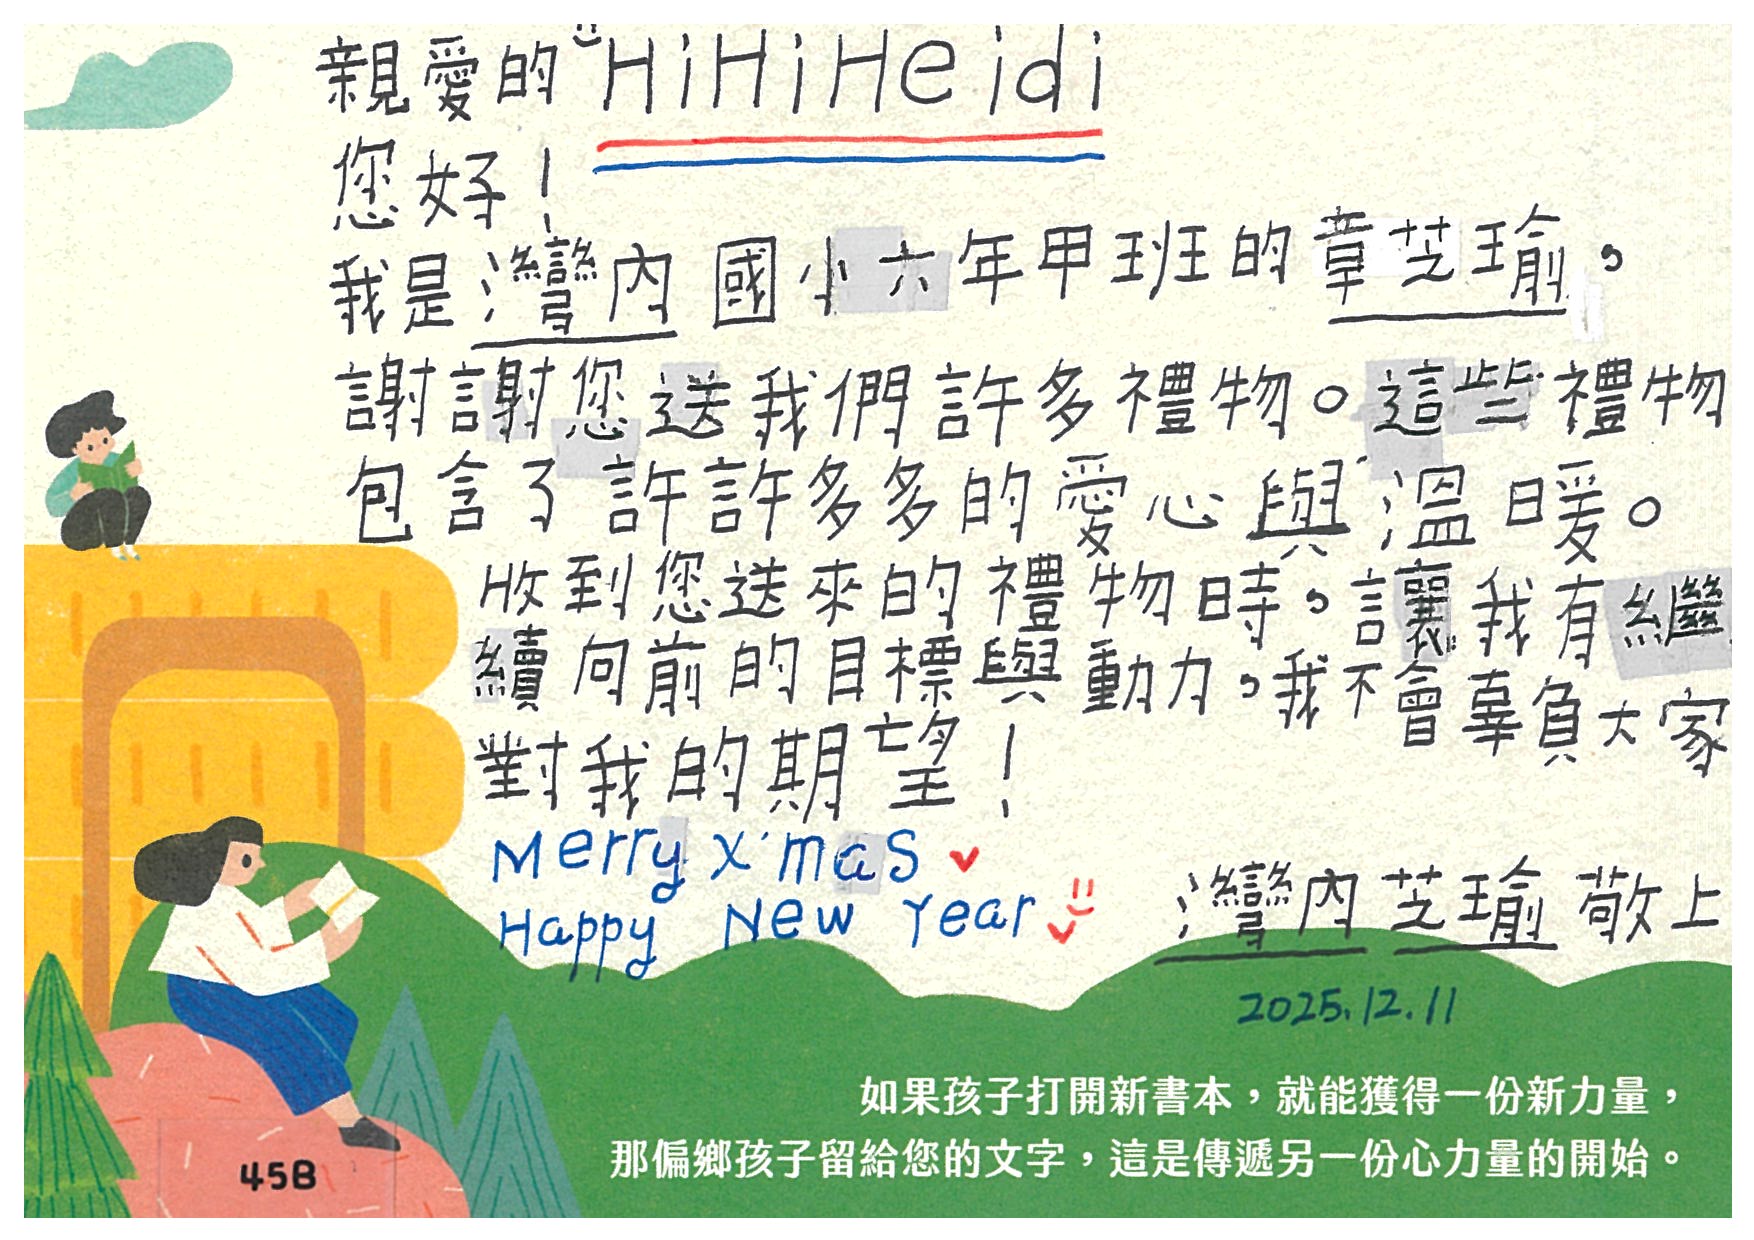 親愛的 HiHiHeidi
您好！
我是灣內國小六年甲班的章芝瑜，
謝謝您送我們許多禮物。這些禮物
包含了許許多多的愛心與溫暖。
收到您送來的禮物時，讓我有繼
續向前的目標與動力，我不會辜負大家
對我的期望！
Merry X'mas
Happy New Year
灣內 芝瑜 敬上
2025.12.11
如果孩子打開新書本，就能獲得一份新力量，
那偏鄉孩子留給您的文字，這是傳遞另一份心力量的開始。
45B